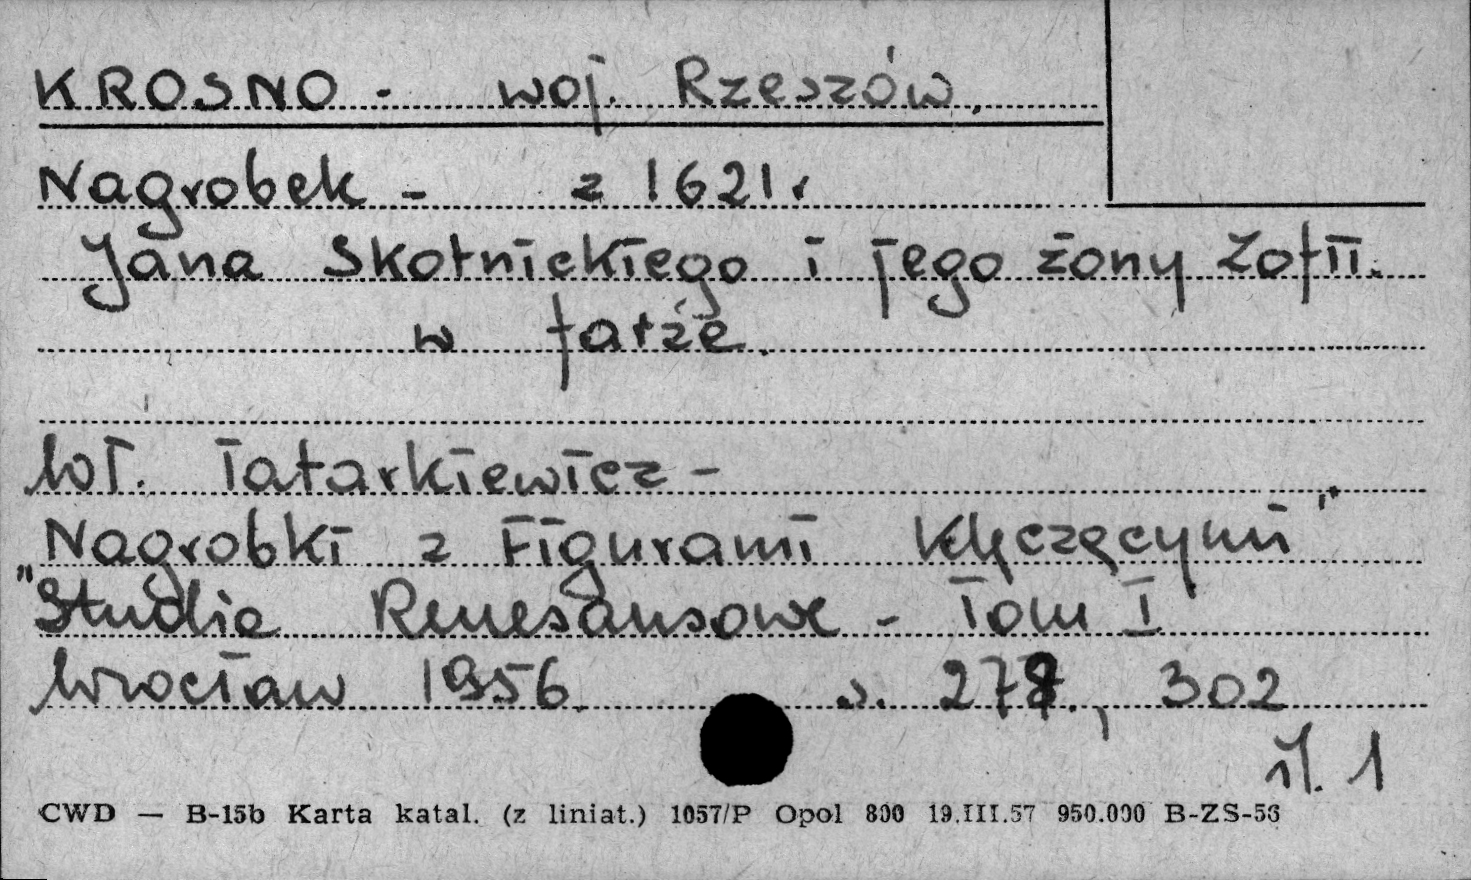 KROSNO - woj. Rzeszów,
Nagrobek - z 1621 r
Jana Skotnickiego i jego żony Zofii.
w farże.
Wł. Tatarkiewicz -
Nagrobki z Figurami Klęczęcymi"
"Studia Renesansowe - Tom I
Wrocław 1956. s. 278., 302
il. 1
CWD — B-15b Karta katal. (z liniat.) 1057/P Opol 800 19.III.57 950.000 B-ZS-56